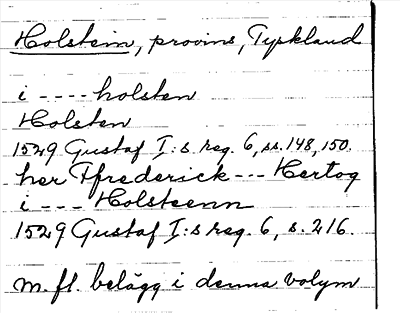 Holstein, provins, Tyskland
i ---- holsten
Holsten
1529 Gustaf I:s reg. 6, ss. 148, 150.
her Ffrederick --- Hertog
i --- Holsteenn
1529 Gustaf I:s reg. 6, s. 216.
m. fl. belägg i denna volym